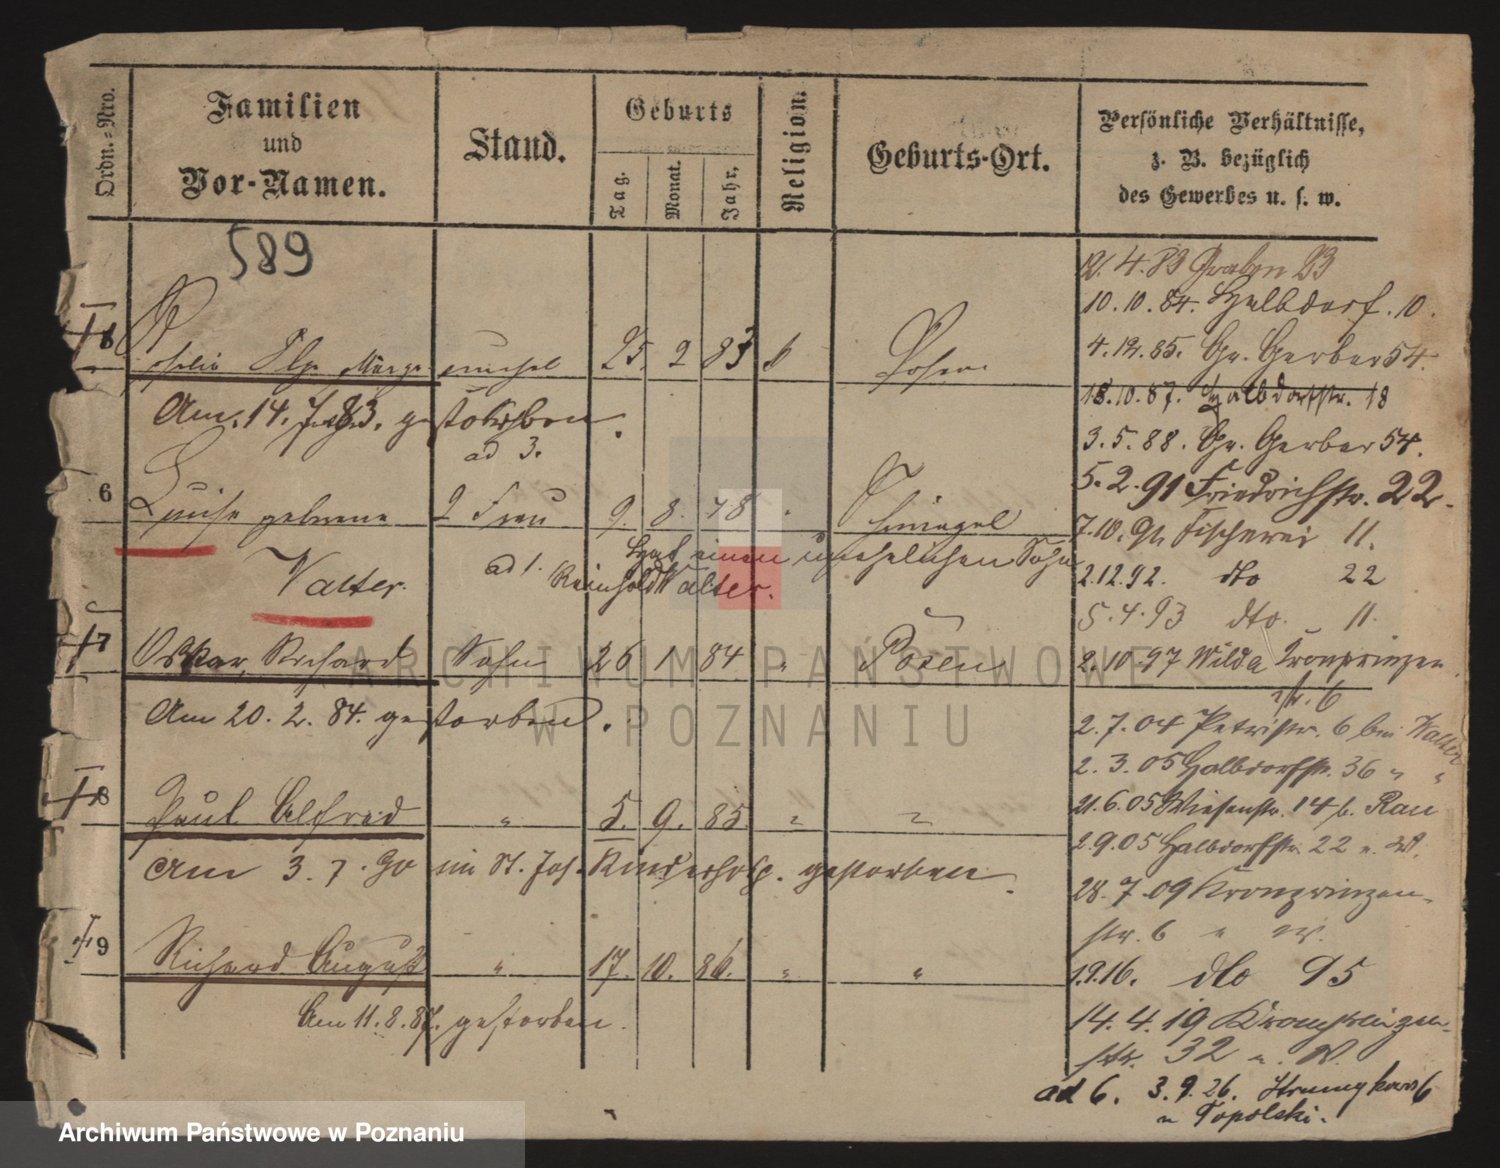 Ordn.=Nro.
Familien
und
Vor-Namen.
Stand.
Geburts
Tag.
Monat.
Jahr.
Religion.
Geburts-Ort.
Persönliche Verhältnisse,
z. B. bezüglich
des Gewerbes u. s. w.
589
25. 2 83
Posen
Am 14. 7. 83. gestorben.
ad 3.
6 Luise geborene 2 Frau 9. 8. 48
Walter.
ad 1. Hat einen unehelichen Sohn
Reinhold Walter.
7 Oskar Richard Sohn 26 1. 84 " Posen
Am 20. 2. 84. gestorben.
8 Paul Alfred " 5. 9. 85. " "
Am 3. 7. 90 im St. Jos. Kinderhosp. gestorben.
9 Richard August " 17. 10. 86. " "
Am 11. 8. 87. gestorben.
4. 83 Graben 23
10. 10. 84. Halbdorf. 10.
4. 12. 85. Gr. Gerber 54.
18. 10. 87. Halbdorfstr. 18
3. 5. 88. Gr. Gerber 54.
5. 2. 91 Friedrichstr. 22.
7. 10. 91 Fischerei 11.
2. 12. 92. dto 22
5. 4. 93 dto. 11.
2. 10. 97 Wilda Kronprinzen
str. 6
2. 7. 04 Petristr. 6 bei Walter
2. 3. 05 Halbdorfstr. 36 " "
21. 6. 05 Wiesenstr. 14 b. Rau
2. 9. 05 Halbdorfstr. 22 b. W.
28. 7. 09 Kronprinzen-
str. 6 " W.
1. 9. 16. dto 95
14. 4. 19 Kronprinzen-
str. 32 " W.
ad 6. 3. 9. 26.
Topolski.
ARCHIWUM PAŃSTWOWE
W POZNANIU
Archiwum Państwowe w Poznaniu